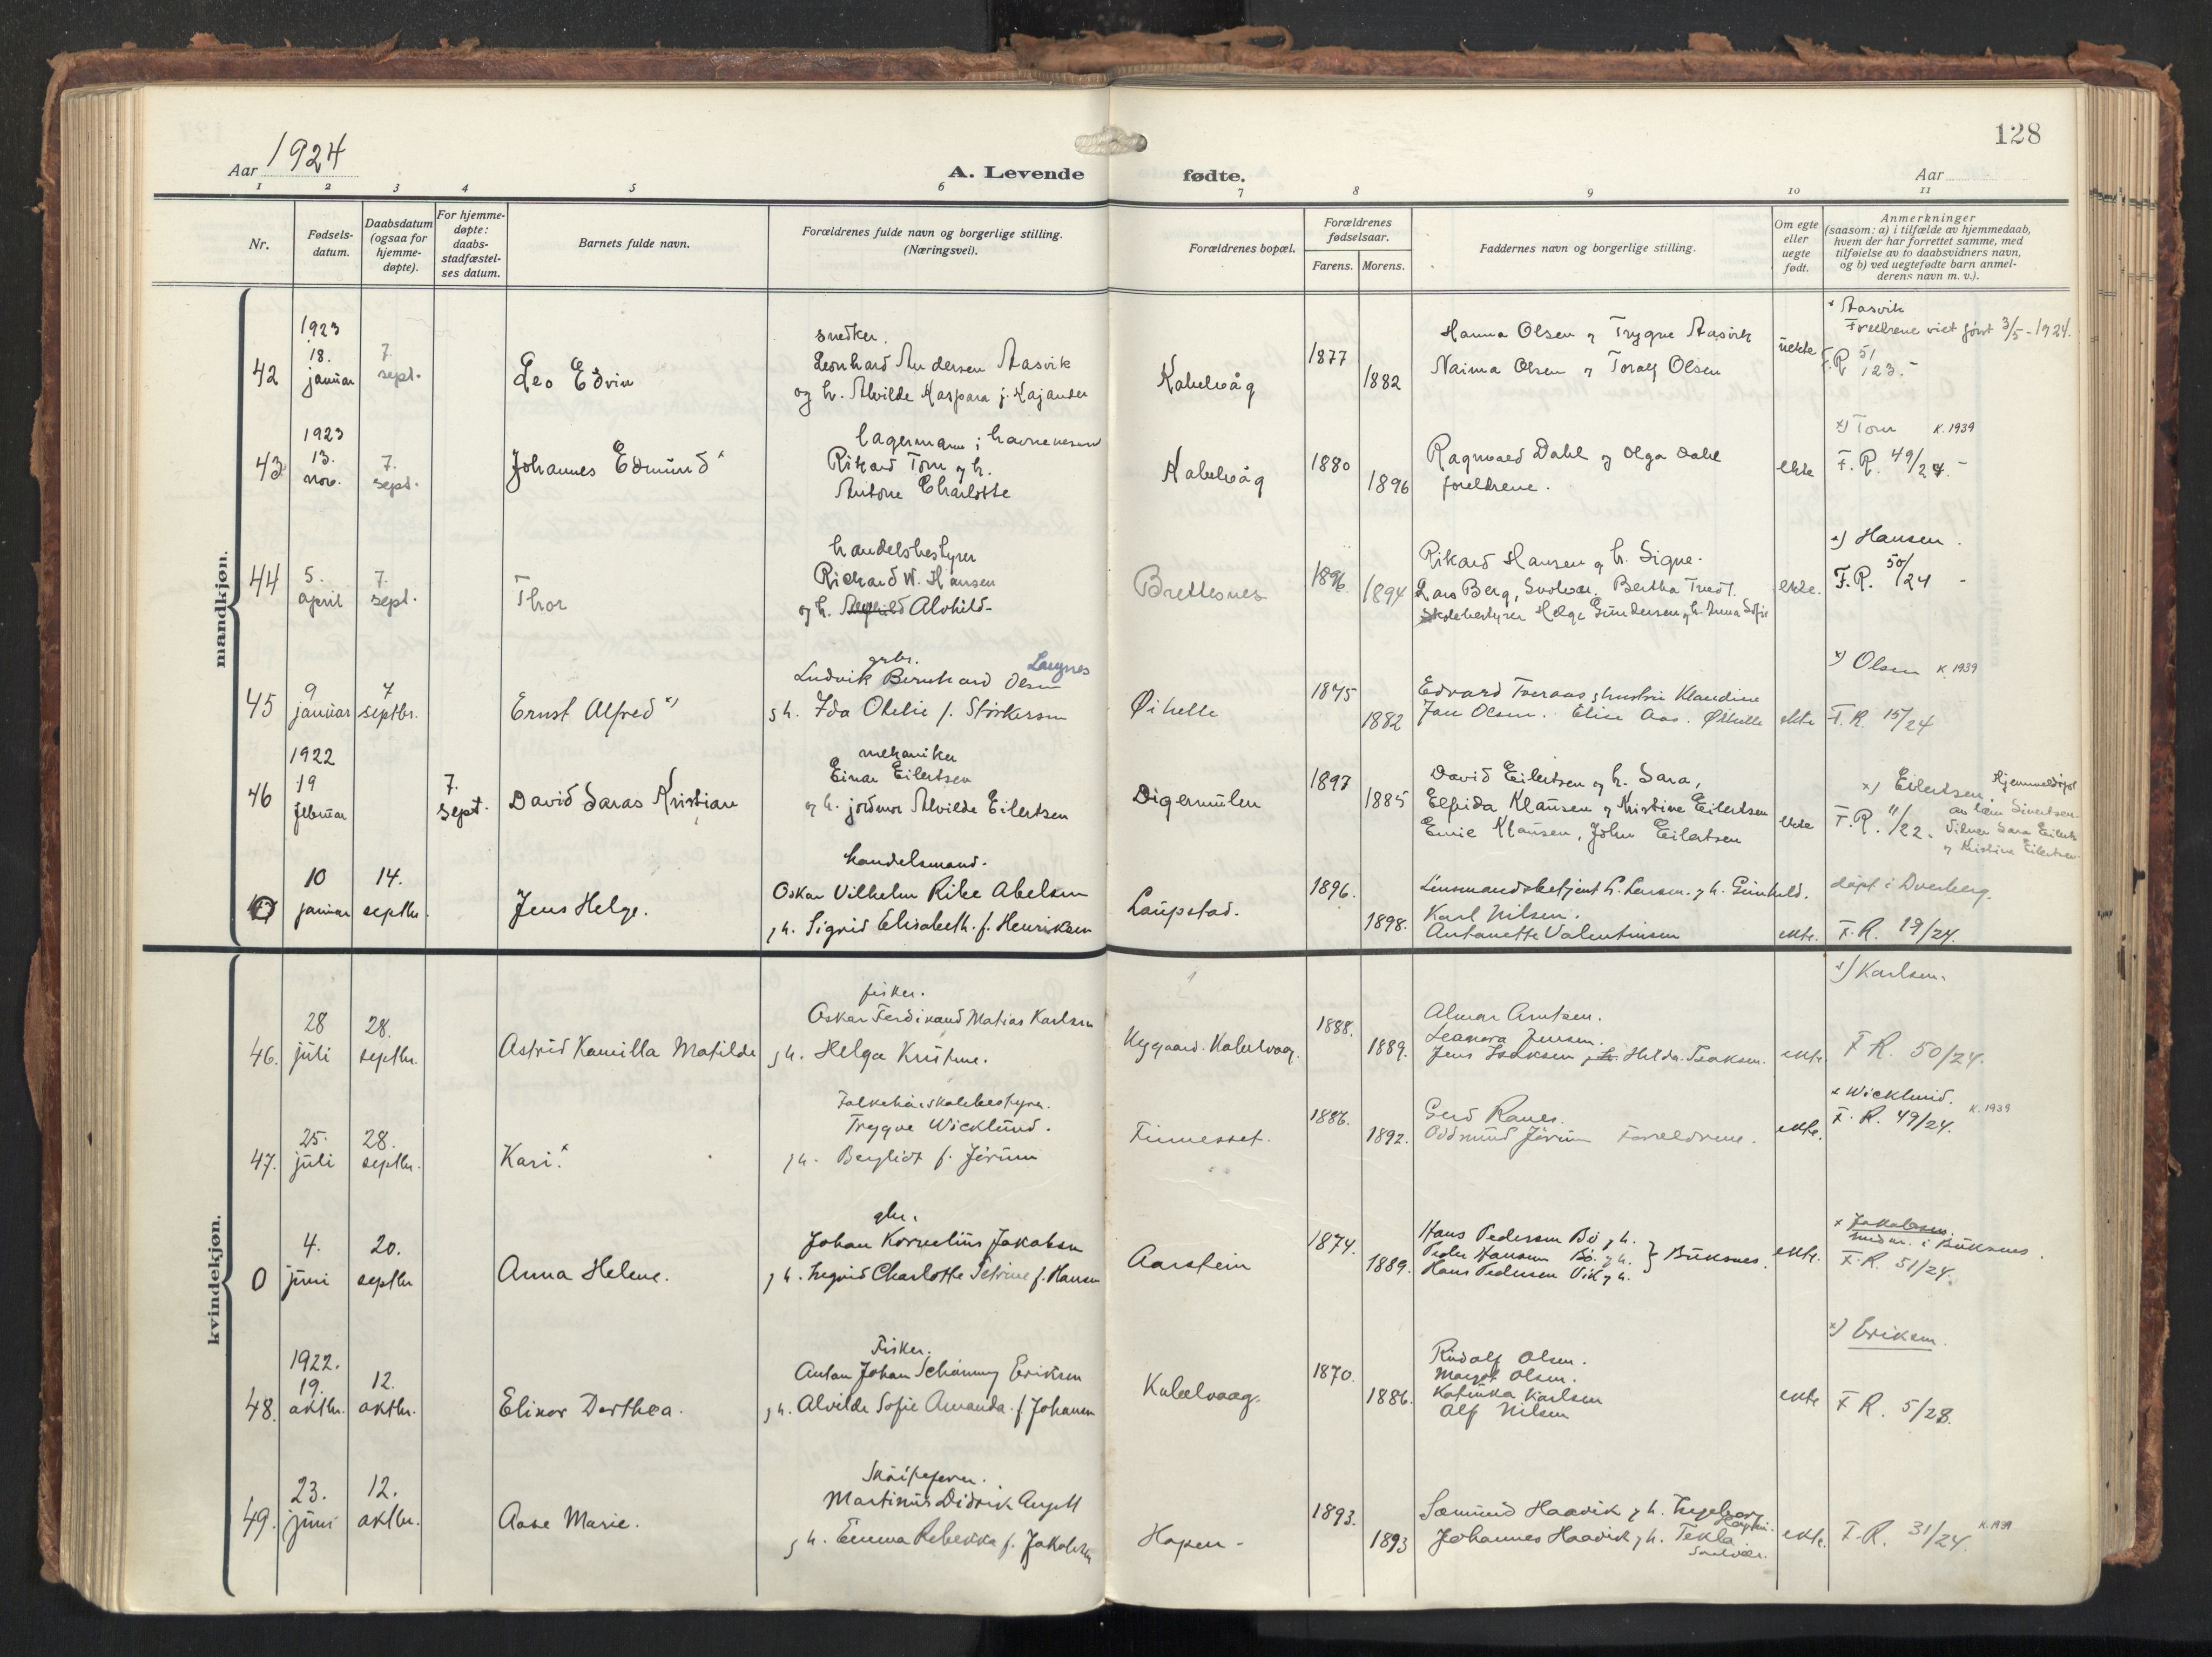 128
Aar 1924
A. Levende fødte.
Aar
1 2 3 4 5 6 7 8 9 10 11
Nr.
Fødsels-
datum.
Daabsdatum
(ogsaa for
hjemme-
døpte).
For hjemme-
døpte:
daabs-
stadfæstel-
ses datum.
Barnets fulde navn.
Forældrenes fulde navn og borgerlige stilling.
(Næringsvei).
Forældrenes bopæl.
Forældrenes
fødselsaar.
Farens. Morens.
Faddernes navn og borgerlige stilling.
Om egte
eller
uegte
født.
Anmerkninger
(saasom: a) i tilfælde av hjemmedaab,
hvem der har forrettet samme, med
tilføielse av to daabsvidners navn,
og b) ved uegtefødte barn anmel-
derens navn m. v.).
mandkjøn.
42
1923
18.
januar
7.
sept.
Leo Edvin
snedker.
Leonhard Andersen Aasvik
og h. Alvilde Kaspara f. Kajander
Kabelvåg
1877
1882
Hanna Olsen og Trygve Aasvik
Naima Olsen og Toralf Olsen
uekte
Aasvik
Foreldrene viet först 3/5-1924.
F.R. 51/23.-
43
1923
13.
nov.
7.
sept.
Johannes Edmund
lagermann i havnevesen
Rikard Torn og h.
Antone Charlotte
Kabelvåg
1880
1896
Ragnvald Dahl og Olga Dahl
foreldrene.
ekte
x) Torn K. 1939
F.R. 49/24.-
44
5.
april
7.
sept.
Thor
handelsbestyrer
Richard W. Hansen
og h. Alvhild
Brettesnes
1896
1894
Rikard Hansen og h. Signe.
Lars Berg, Svolvær. Bertha
Skolebestyrer Helge Gundersen og h. Anna Sofie
ekte.
x) Hansen.
F.R. 50/24 -
45
9
januar
7
septbr.
Ernst Alfred x)
grbr.
Ludvik Bernhard Olsen
Laugnes
og h. Ida Otelie f. Störkersen
Øihelle
1875
1882
Edvard Tveraas og hustru Klaudine
Jan Olsen. Elise Aas. Øihelle
ekte
x) Olsen K. 1939
F.R. 15/24
46
1922
19
februar
7.
sept.
David Saras Kristian
mekaniker
Einar Eilertsen
og h. jordmor Alvilde Eilertsen
Digermulen
1897
1885
David Eilertsen og h. Sara,
Elfrida Klausen og Kristine Eilertsen
Emie Klausen, John Eilertsen
ekte
x) Eilertsen. Hjemmedöpt
av Sivertsen.
F.R. 11/22. Vidner Sara Eilerts
og Kristine Eilertsen.
0
10
januar
14.
septbr.
Jens Helge.
handelsmand.
Oskar Vilhelm Rike Abelsen
og h. Sigrid Elisabeth. f. Henriksen
Laupstad.
1896.
1898.
Lensmandsbetjent L. Larsen. og h. Gunhild.
Karl Nilsen.
Antonette Valentinsen
ekte.
døpt i Dverberg.
F.R. 19/24.
kvindekjøn.
46.
28
juli
28.
septbr.
Astrid Kamilla Matilde
fisker.
Oskar Ferdinand Matias Karlsen
og h. Helga Kristine.
Nygaard. Kabelvaag.
1888.
1889.
Almar Arntsen.
Leanora Jensen.
Jens Isaksen og h. Hilda Isaksen.
ekte.
x) Karlsen.
F.R. 50/24.
47.
25.
juli
28.
septbr.
Kari.
Folkehöiskolebestyrer.
Trygve Wicklund.
og h. Bergliot f. Jörum
Finnesset.
1886.
1892.
Gerd Ranes.
Oddmund Jörum Forældrene.
ekte.
x Wicklund.
F.R. 49/24. K. 1939
0
4.
juni
20.
septbr
Anna Helene.
gbr.
Johan Kornelius Jakobsen
og h. Ingrid Charlotte Petrine f. Hansen
Aarstein
1874.
1889.
Hans Pedersen Bö og h.
Peder Hansen Bö. og h. } Buksnes.
Hans Pedersen Vik og h.
ekte.
x Jakobsen.
i Buksnes.
F.R. 51/24.
48.
1922.
19.
oktbr.
12.
oktbr.
Elinor Dorthea.
Fisker.
Anton Johan Schönning Eriksen
og h. Alvilde Sofie Amanda. f Johansen
Kabelvaag.
1870.
1886.
Rudolf Olsen.
Margot Olsen.
Katinka Karlsen
Alf Nilsen
ekte
x) Eriksen.
F.R. 5/28.
49.
23.
juni
12.
oktbr.
Aase Marie.
Martinus Didrik Angell
og h. Emma Rebekka f. Jakobsen
Hopen -
1893.
1893
Sæmund Haavik og h. Ingeborg
Johannes Haavik og h. Tekla
ekte.
F.R. 31/24. K. 1939